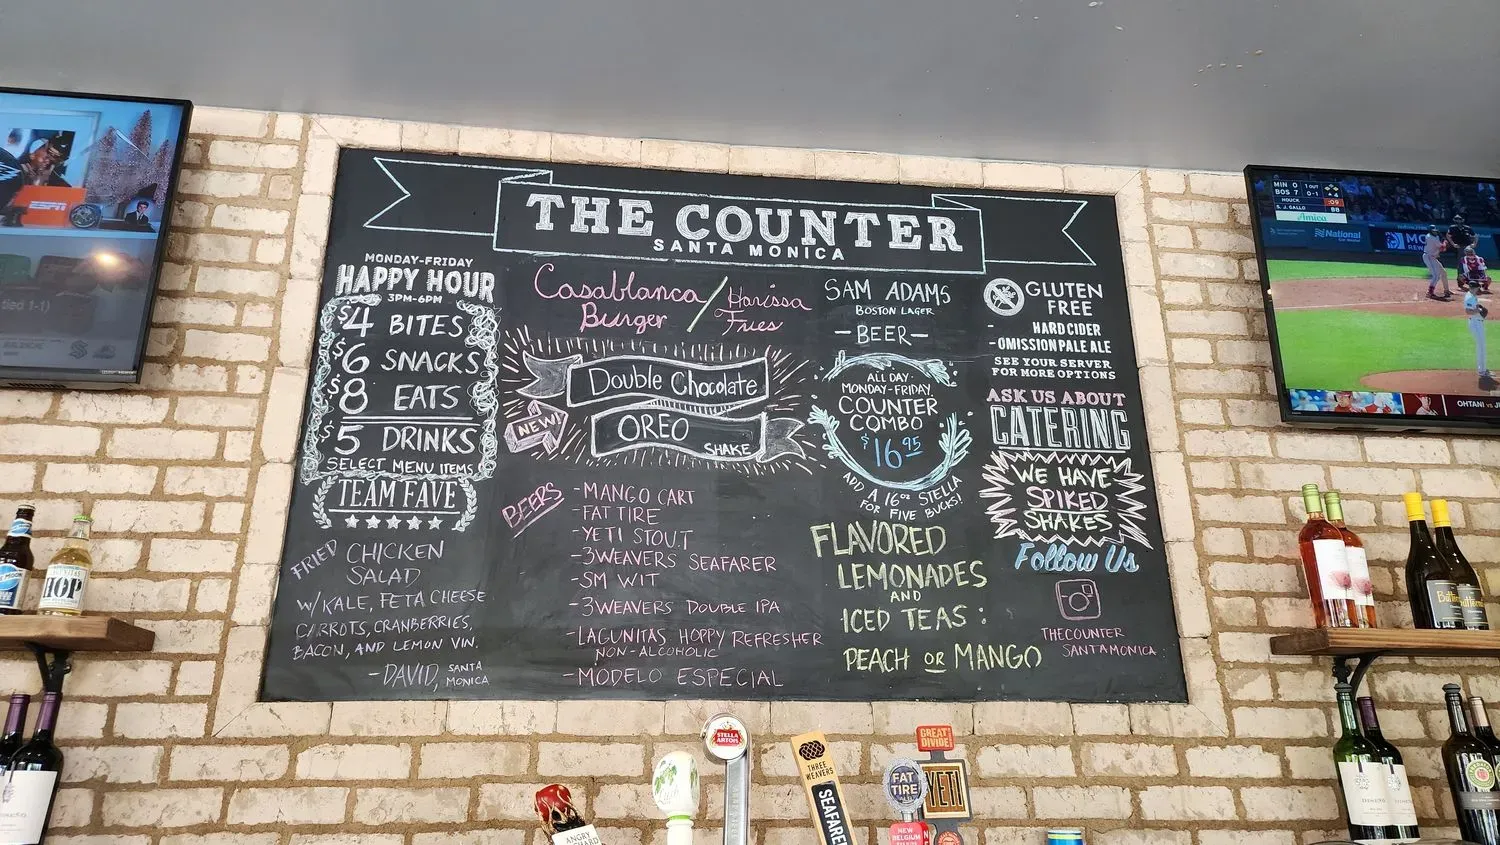 THE COUNTER
SANTA MONICA
MONDAY-FRIDAY
HAPPY HOUR
3PM-6PM
$4 BITES
$6 SNACKS
$8 EATS
$5 DRINKS
SELECT MENU ITEMS
TEAM FAVE
FRIED CHICKEN
SALAD
W/KALE, FETA CHEESE
CARROTS, CRANBERRIES,
BACON, AND LEMON VIN.
-DAVID, SANTA
MONICA
Casablanca
Burger
/ Harissa
Fries
NEW!
Double Chocolate
OREO
SHAKE
BEERS
-MANGO CART
-FAT TIRE
-YETI STOUT
-3WEAVERS SEAFARER
-SM WIT
-3WEAVERS DOUBLE IPA
-LAGUNITAS HOPPY REFRESHER
NON-ALCOHOLIC
-MODELO ESPECIAL
SAM ADAMS
BOSTON LAGER
-BEER-
ALL DAY
MONDAY-FRIDAY
COUNTER
COMBO
$16.95
ADD A 16oz STELLA
FOR FIVE BUCKS!
FLAVORED
LEMONADES
AND
ICED TEAS:
PEACH OR MANGO
GLUTEN
FREE
- HARD CIDER
- OMISSION PALE ALE
SEE YOUR SERVER
FOR MORE OPTIONS
ASK US ABOUT
CATERING
WE HAVE
SPIKED
SHAKES
Follow Us
THECOUNTER
SANTAMONICA
ESPN
tied 1-1)
MIN 0
BOS 7
1 OUT
0-1
HOUCK
:09
5. J. GALLO
88
Amica
National
OHTANI
MOON
HOP
STELLA
ARTOIS
THREE
WEAVERS
SEAFARER
GREAT
DIVIDE
FAT
TIRE
YETI
NEW
BELGIUM
ANGRY